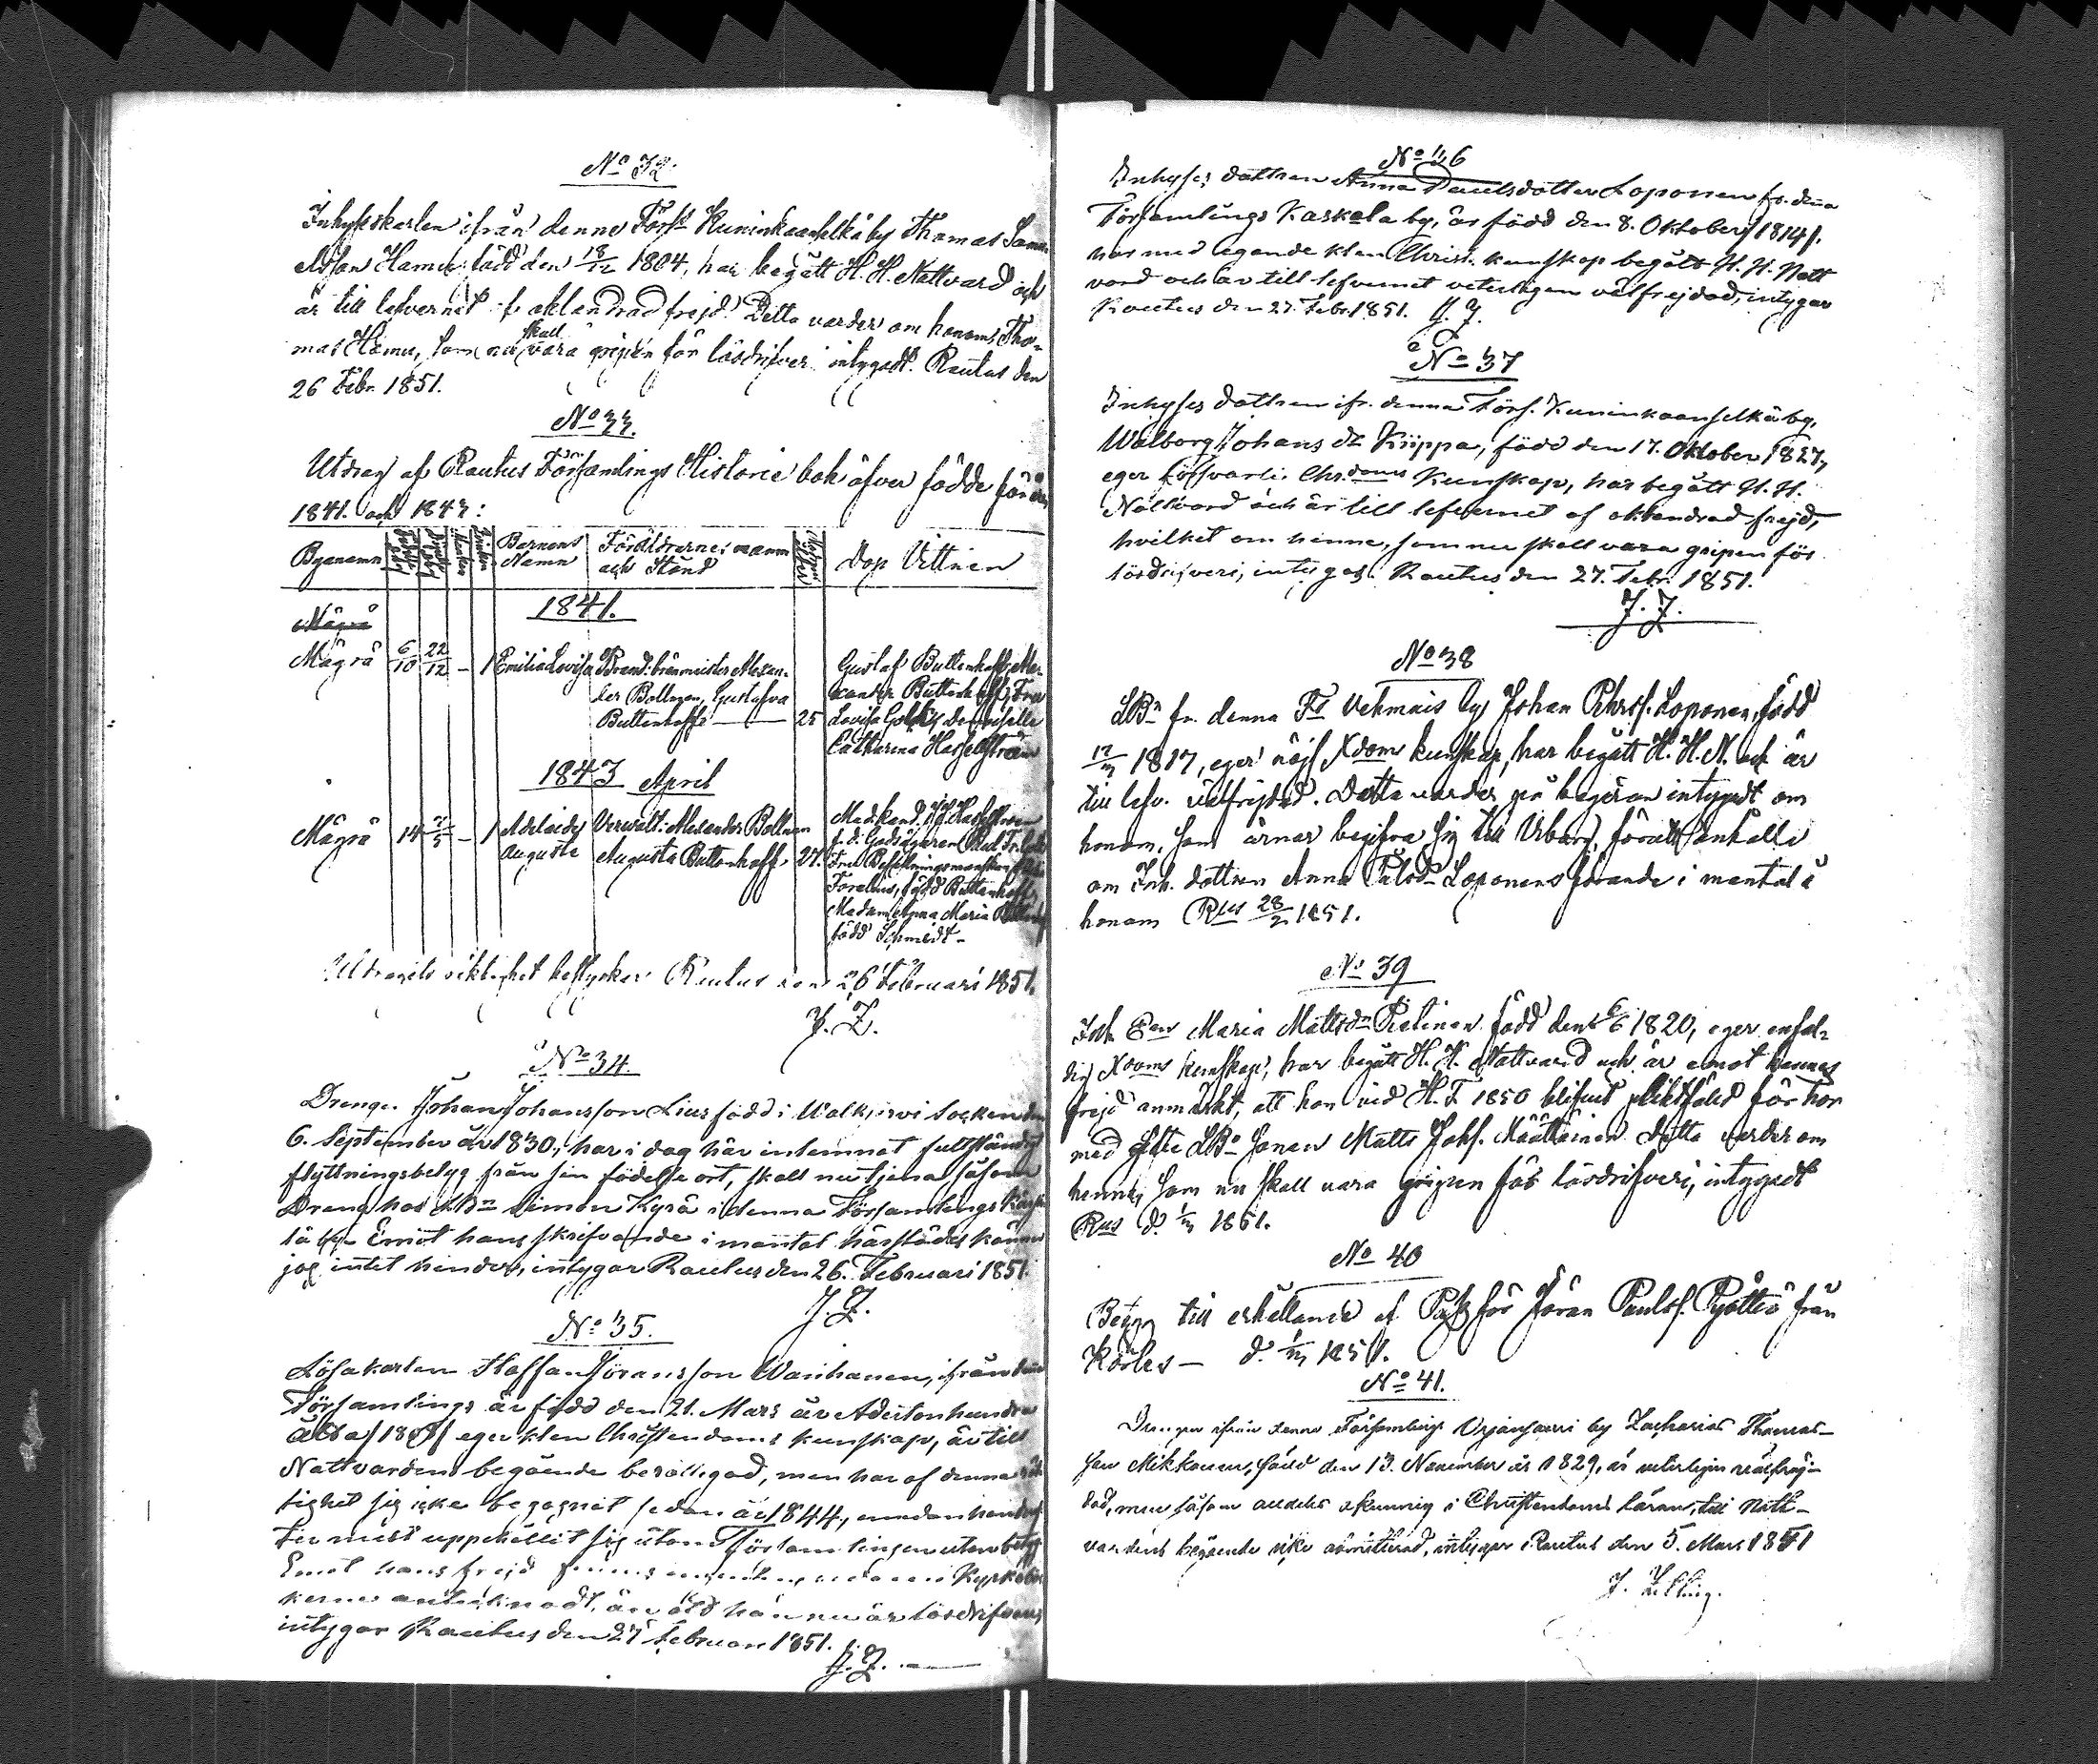 No 32.
Inhyseskarlen ifrån denne Förs. Kuninkaanselkä by Thomas Samu-
elsson Hamu, född den 18/12 1804, har begått H. H. Nattvard och
är till lefvernet f. oklandrad frejd. Detta varder om honom, Tho-
mas Hamu, som nu skall vara gripen för lösdrifveri intygadt. Rautus den
26 Febr. 1851.
No 33.
Utdrag af Rautus Församlings Historie bok öfver födde för år
1841. och 1843:
Byanamn
Barnens Namn
Föräldrarnes namn och Stånd
Dop Vittnen
1841.
Mägrä
Mägrä 6/10 22/12 – 1 Emilia Lovisa
Alexan-
der Bollman, Gustafva
Buttenhoff — 25
Gustaf Buttenhoff, Ale-
xander Buttenhoff, Fru
Lovisa Demoiselle
Catharina Hasselström
1843 April
Mägrä 14 – 1 Adelaide Augusta
Verwalt. Alexander Bollman
Augusta Buttenhoff 27.
född Buttenhoff,
Madam Anna Maria
född Schmidt –
Utdragets riktighet bestyrker Rautus den 26 Februari 1851.
J. Z.
No 34
Drängen Johan Johansson Lius född i Walkjärvi Socken den
6. September år 1830, har i dag här inlemnat fullständigt
flyttningsbetyg från sin födelse ort, skall nu tjena såsom
Dräng hos LBn Simon Kyrö i denna Församlings
lä by. Emot hans skrifvande i mantal härstädes känner
jag intet hinder, intygar Rautus den 26. Februari 1851.
J. Z.
No 35.
Lösakarlen Staffan Göransson Wanhanen, ifrån denne
Församling, är född den 21. Mars år Adertonhundra
åtta /1808/ eger klen Christendoms kunskap, är till
Nattvardens begående berättigad, men har af denna rät
tighet sig icke begagnat sedan år 1844, emedan han
mest uppehållit sig utom Församlingen utan betyg
Emot hans frejd finnes i Kyrkobö
kerne antecknadt, än att han nu är lösdrifvare,
intygar Rautus den 27 Februari 1851.
J. Z.
No 36
Inhyses dottren Anna Paulsdotter Loponen fr. denna
Församlings Kaskala by, är född den 8. Oktober 1814.
har med egande klen Christ. kunskap begått H. H. Natt
vard och är till lefvernet veterligen välfrejdad, intygar
Rautus den 27. Febr. 1851. J. Z.
No 37
Inhyses dottren ifr. denna Förs. Kuninkaanselkä by,
Walborg Johans dr Kiippa, född den 17. Oktober 1827,
eger försvarli. Chr.doms Kunskap, har begått H. H.
Nattvard och är till lefvernet af oklandrad frejd,
hvilket om henne, som nu skall vara gripen för
lösdrifveri, intygas. Rautus den 27. Febr. 1851.
J. Z.
No 38
LBn fr. denna Fs Vehmais by Johan Pehrss. Loponen, född
1817, eger nöjl Xdoms kunskap, har begått H. H. N. och är
till lefv. välfrejdad. Detta varder på begäran intygadt om
honom, som ärnar begifva sig till för att anhålla
om Inh. dottren Anna Loponens förande i mantal å
honom Rus 28/2 1851.
No 39
Inh. Maria Mattsdr Pietinen född den 6/6 1820, eger enfal-
dig Xdoms kunskap, har begått H. H. Nattvard och är emot hennes
frejd anmärkt, att hon vid H. T. 1850 blifvit pliktfälld för hor
med gifte LBn sonen Matts Johs. Määttäinen. Detta varder om
henne, som nu skall vara gripen för lösdrifveri, intygadt
Rus d. 1851.
No 40
Betyg till erhållande af Pass för Jöran Paulss. Pyöttiö från
d. 1851.
No 41.
Drängen ifrån denna Församlings by Zacharias Thomas-
son Mikkonen, född den 13. November år 1829, är veterligen välfräj-
dad, men såsom alldeles okunnig i Christendoms läran, till Natt-
vardens begående icke admitterad, intygar Rautus den 5. Mars 1851
J. Zilling.